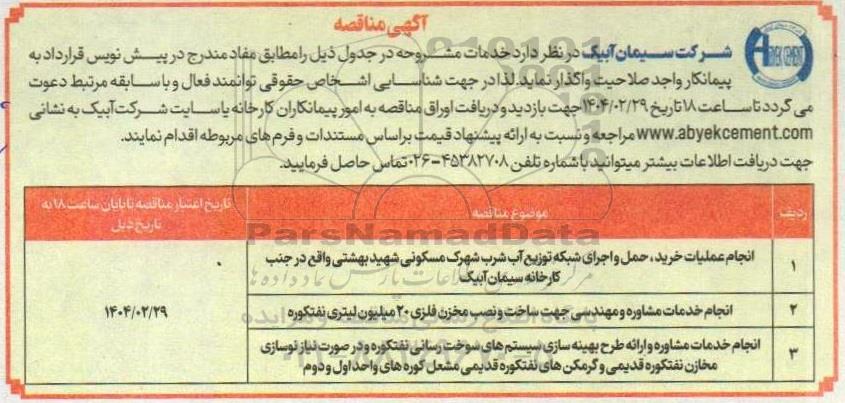 آگهی مناقصه
شرکت سیمان آبیک در نظر دارد خدمات مشروحه در جدول ذیل را مطابق مفاد مندرج در پیش نویس قرارداد به
پیمانکار واجد صلاحیت واگذار نماید. لذا در جهت شناسایی اشخاص حقوقی توانمند فعال و با سابقه مرتبط دعوت
می گردد تا ساعت ۱۸ تاریخ ۱۴۰۴/۰۲/۲۹ جهت بازدید و دریافت اوراق مناقصه به امور پیمانکاران کارخانه یا سایت شرکت آبیک به نشانی
www.abyekcement.com مراجعه و نسبت به ارائه پیشنهاد قیمت براساس مستندات و فرم های مربوطه اقدام نمایند.
جهت دریافت اطلاعات بیشتر میتوانید با شماره تلفن ۴۵۳۸۲۷۰۸-۰۲۶ تماس حاصل فرمایید.
ردیف
موضوع مناقصه
تاریخ اعتبار مناقصه تا پایان ساعت ۱۸ به
تاریخ ذیل
۱
انجام عملیات خرید، حمل و اجرای شبکه توزیع آب شرب شهرک مسکونی شهید بهشتی واقع در جنب
کارخانه سیمان آبیک
۲
انجام خدمات مشاوره و مهندسی جهت ساخت و نصب مخزن فلزی ۲۰ میلیون لیتری نفتکوره
۱۴۰۴/۰۲/۲۹
۳
انجام خدمات مشاوره و ارائه طرح بهینه سازی سیستم های سوخت رسانی نفتکوره و در صورت نیاز نوسازی
مخازن نفتکوره قدیمی و گرمکن های نفتکوره قدیمی مشعل کوره های واحد اول و دوم
ParsNamadData